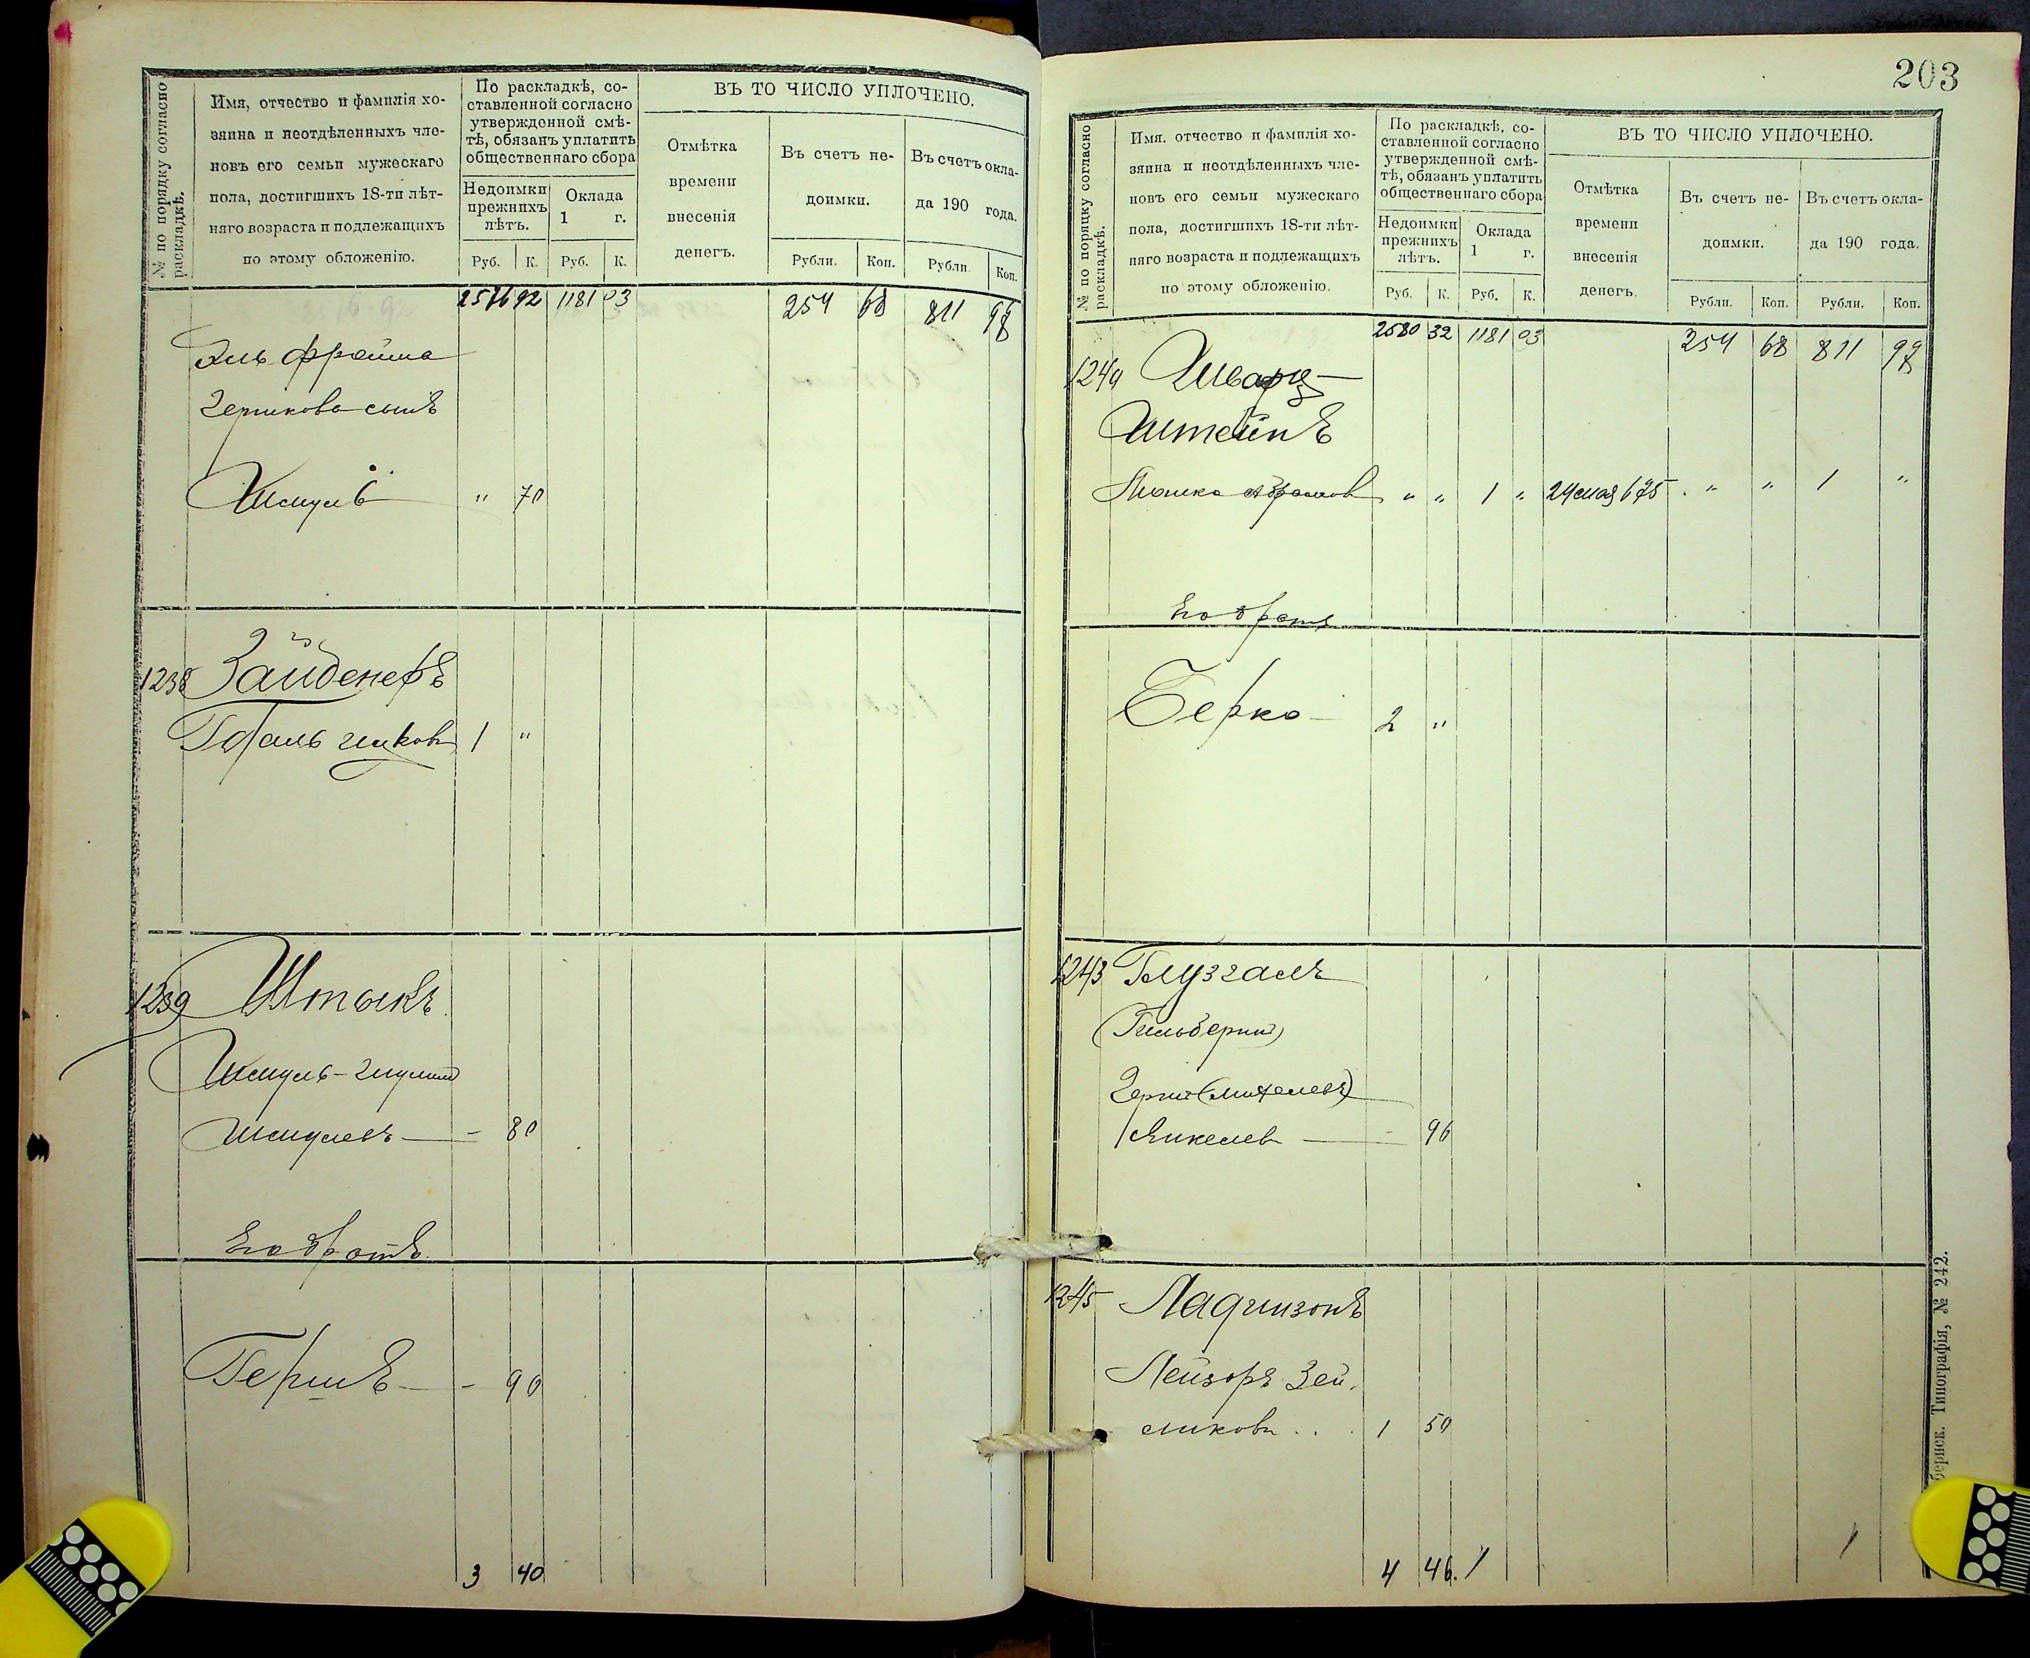 № по порядку согласно раскладкѣ.
Имя, отчество и фамилія хо-
зяина и неотдѣленныхъ чле-
новъ его семьи мужескаго
пола, достигшихъ 18-ти лѣт-
няго возраста и подлежащихъ
по этому обложенію.
По раскладкѣ, со-
ставленной согласно
утвержденной смѣ-
тѣ, обязанъ уплатить
общественнаго сбора
Недоимки
прежнихъ
лѣтъ.
Оклада
1 г.
Руб. К. Руб. К.
ВЪ ТО ЧИСЛО УПЛОЧЕНО.
Отмѣтка
времени
внесенія
денегъ.
Въ счетъ не-
доимки.
Рубли. Коп.
Въ счетъ окла-
да 190 года.
Рубли Коп.
2576 92 1181 03 254 68 811 98
Герникова сынъ
Шмуль " 70
1238 Зайденефъ
1 "
1239 Штыкъ
Шмуль-
Шмулевъ — - 80
Его братъ
Гершъ - - 90
3 40
203
№ по порядку согласно раскладкѣ.
Имя, отчество и фамилія хо-
зяина и неотдѣленныхъ чле-
новъ его семьи мужескаго
пола, достигшихъ 18-ти лѣт-
няго возраста и подлежащихъ
по этому обложенію.
По раскладкѣ, со-
ставленной согласно
утвержденной смѣ-
тѣ, обязанъ уплатить
общественнаго сбора
Недоимки
прежнихъ
лѣтъ.
Оклада
1 г.
Руб. К. Руб. К.
ВЪ ТО ЧИСЛО УПЛОЧЕНО.
Отмѣтка
времени
внесенія
денегъ.
Въ счетъ не-
доимки.
Рубли. Коп.
Въ счетъ окла-
да 190 года.
Рубли. Коп.
2580 32 1181 03 254 68 811 98
1240 Шварц-
Штейнъ
Абрамов " " 1 " 24 мая 675 " " 1 "
Его братъ
Берко - 2 "
1243 Глузгалъ
(Гильберш)
Герш (Михелевъ)
Янкелев — - 96
1245 Ладгизонъ
Лейзоръ Зей-
ликовъ . . . 1 50
4 46. 1 1
берпск. Типографія, № 242.